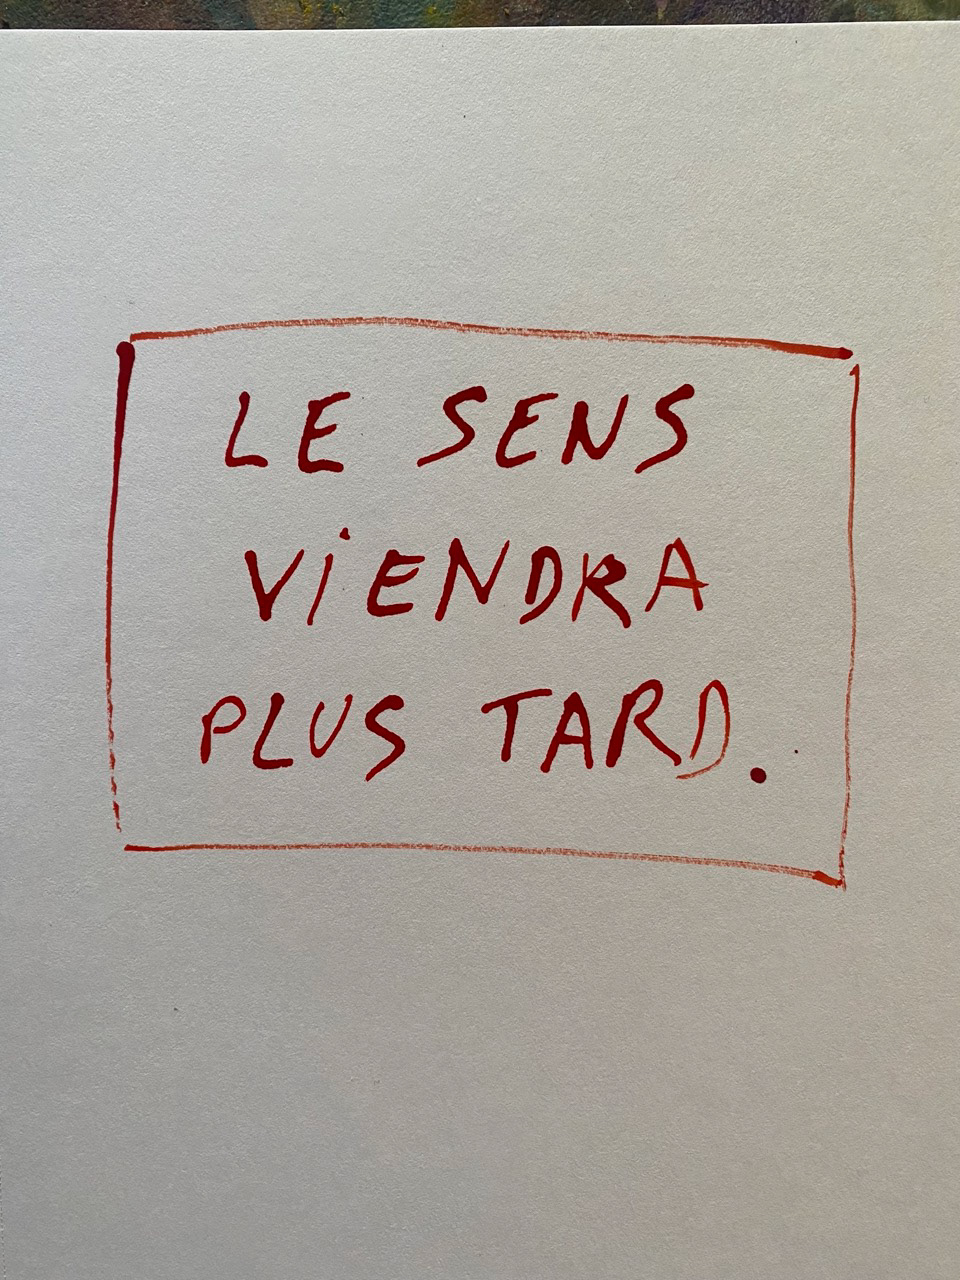 LE SENS
ViENDRA
PLUS TARD.